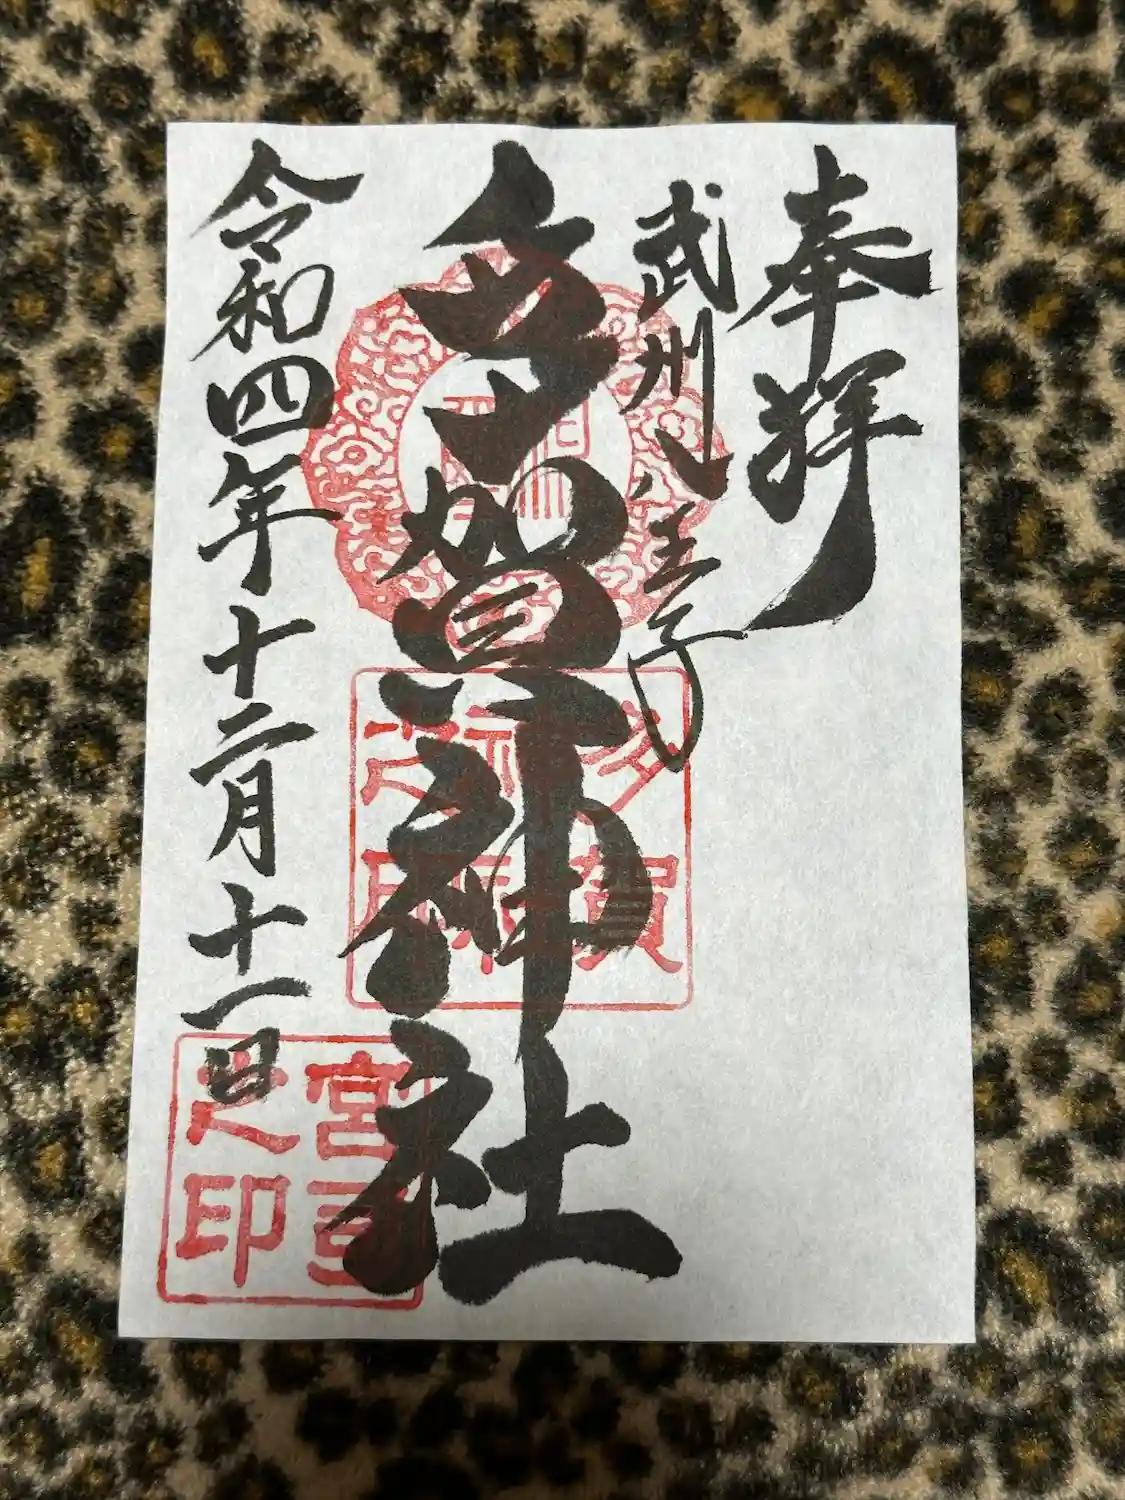 奉拝
武州八王子
多賀神社
令和四年十二月十一日
多賀
神社
之印
宮司
之印